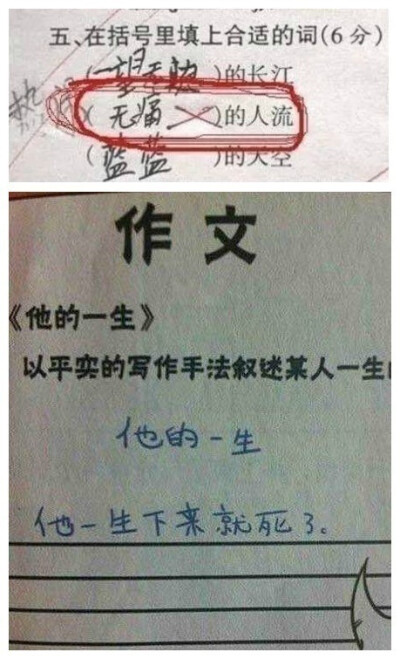 五、在括号里填上合适的词(6分)
(一望无际)的长江
(无痛)的人流
(蓝蓝)的天空
作文
《他的一生》
以平实的写作手法叙述某人一生
他的一生
他一生下来就死了。